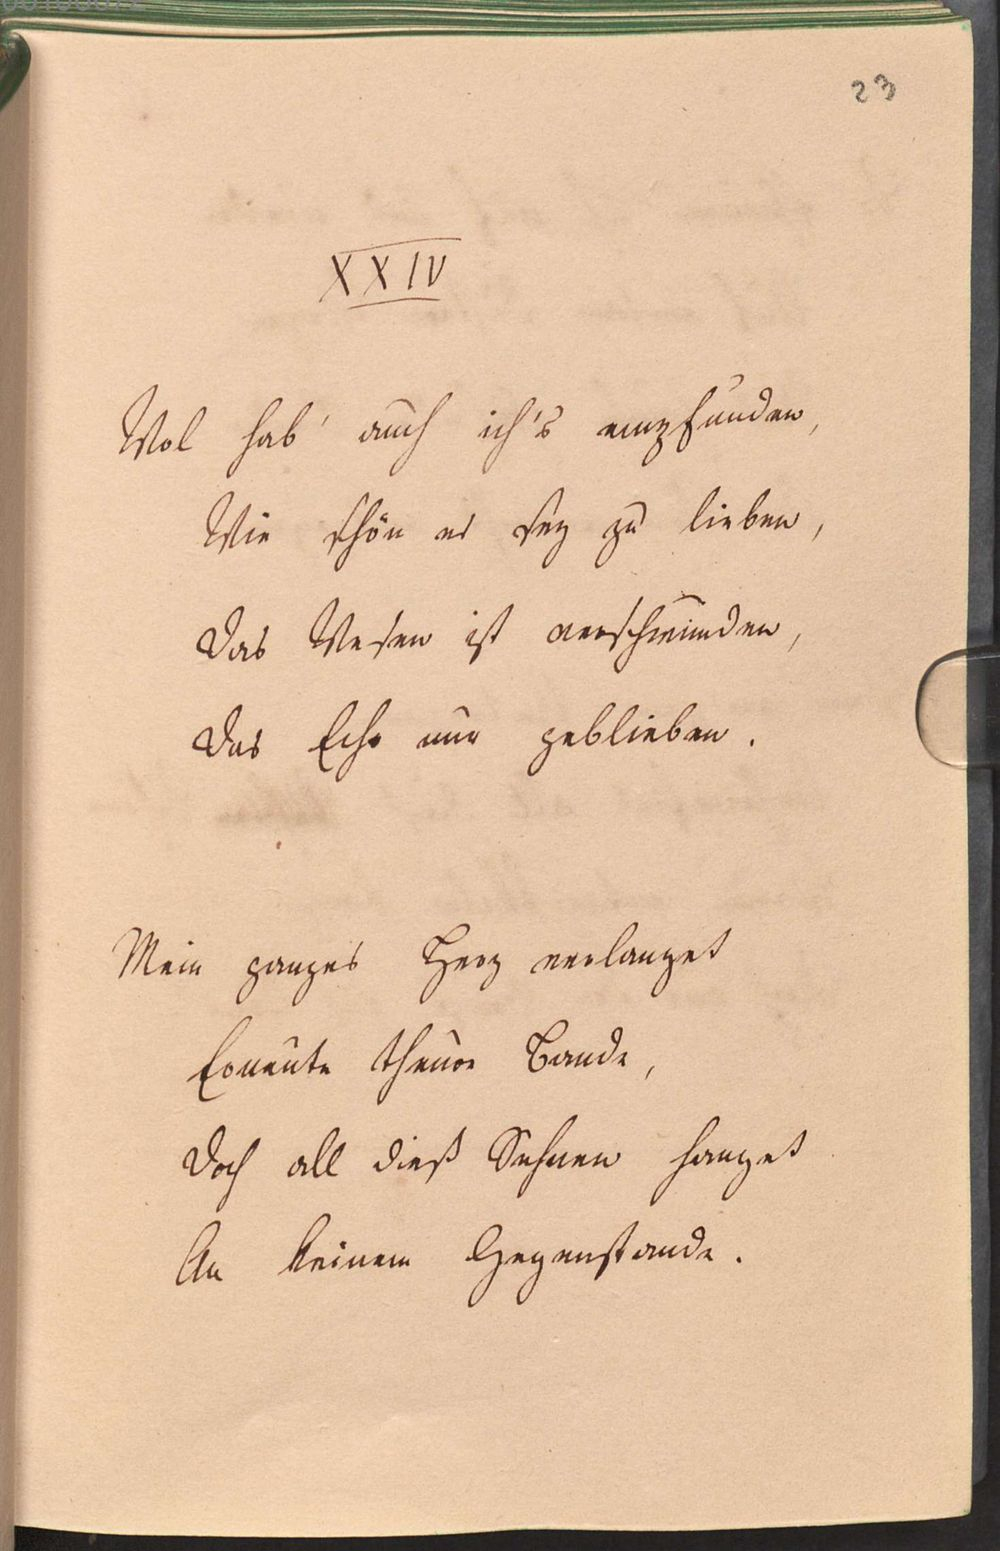 23
XXIV
Wol hab' auch ich's empfunden,
Wie schön es sey zu lieben,
Das Wesen ist verschwunden,
Das Echo nur geblieben.
Mein ganzes Herz verlanget
Erneute theure Bande,
Doch all dieß Sehnen hanget
An keinem Gegenstande.